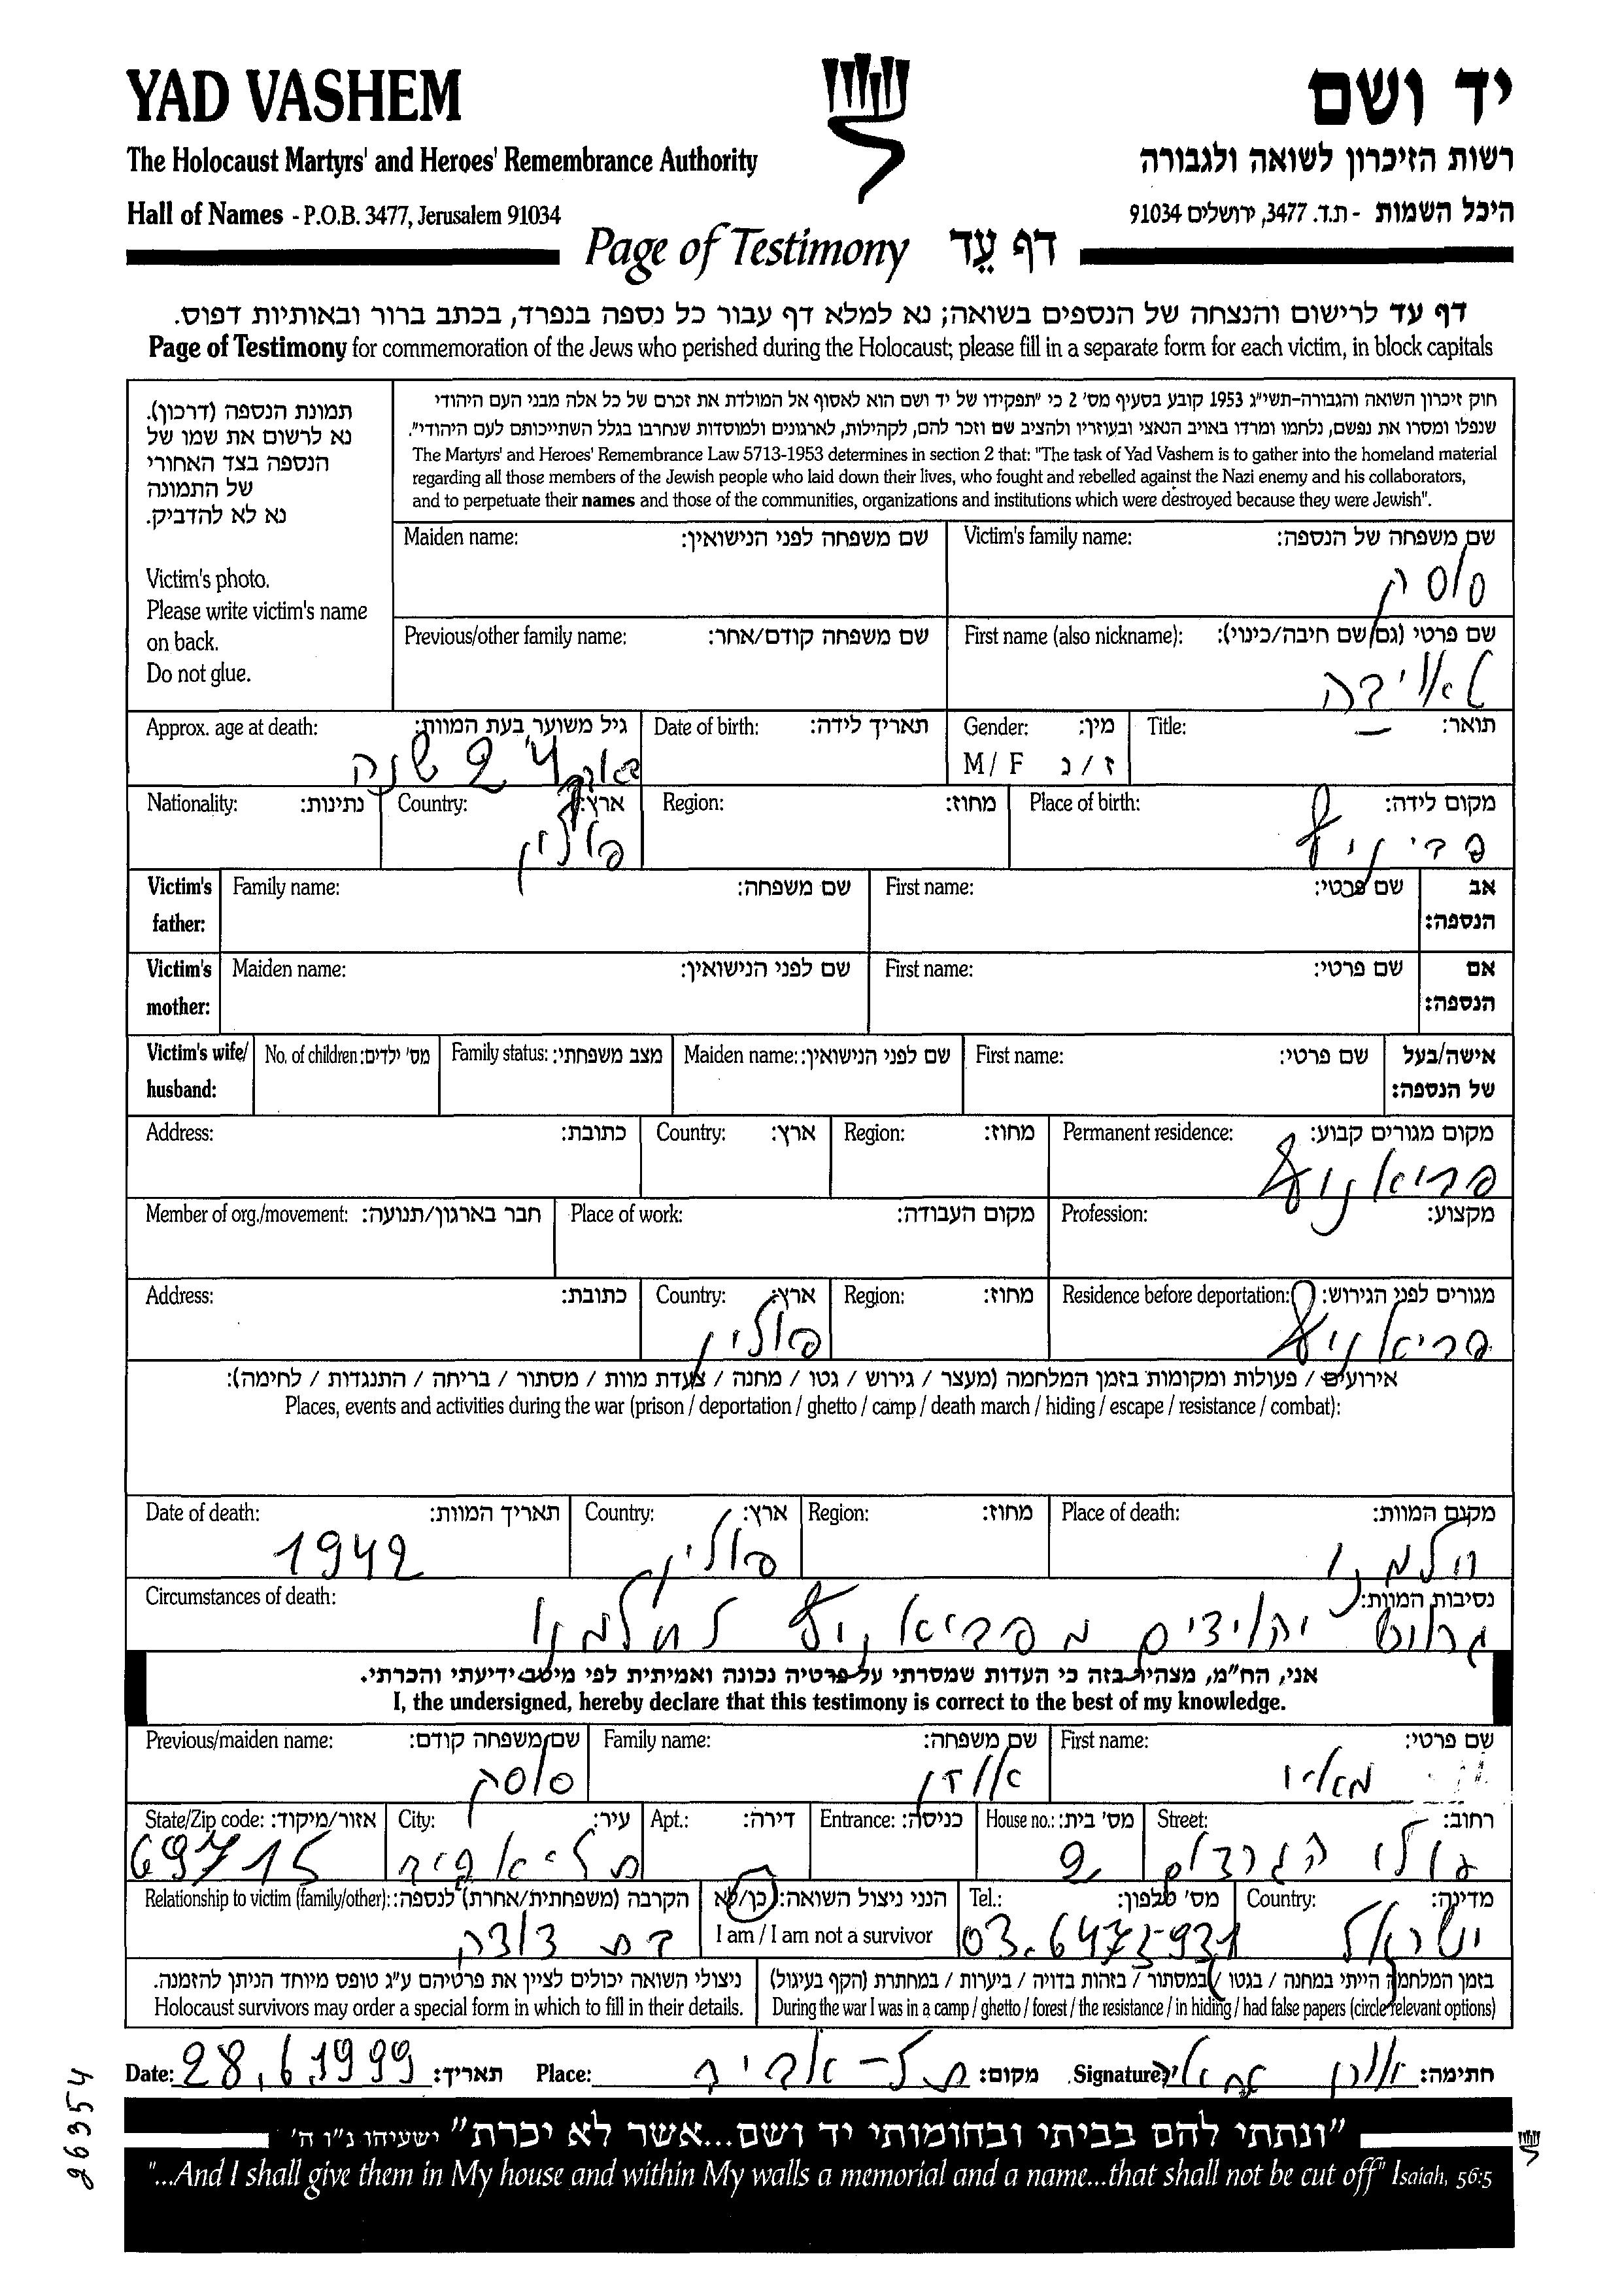 YAD VASHEM
יד ושם
The Holocaust Martyrs' and Heroes' Remembrance Authority
רשות הזיכרון לשואה ולגבורה
Hall of Names - P.O.B. 3477, Jerusalem 91034
היכל השמות - ת.ד. 3477, ירושלים 91034
Page of Testimony דף עֵד
דף עד לרישום והנצחה של הנספים בשואה; נא למלא דף עבור כל נספה בנפרד, בכתב ברור ובאותיות דפוס.
Page of Testimony for commemoration of the Jews who perished during the Holocaust; please fill in a separate form for each victim, in block capitals
תמונת הנספה (דרכון).
נא לרשום את שמו של
הנספה בצד האחורי
של התמונה
נא לא להדביק.
Victim's photo.
Please write victim's name
on back.
Do not glue.
חוק זיכרון השואה והגבורה-תשי"ג 1953 קובע בסעיף מס' 2 כי "תפקידו של יד ושם הוא לאסוף אל המולדת את זכרם של כל אלה מבני העם היהודי
שנפלו ומסרו את נפשם, נלחמו ומרדו באויב הנאצי ובעוזריו ולהציב שם וזכר להם, לקהילות, לארגונים ולמוסדות שנחרבו בגלל השתייכותם לעם היהודי".
The Martyrs' and Heroes' Remembrance Law 5713-1953 determines in section 2 that: "The task of Yad Vashem is to gather into the homeland material
regarding all those members of the Jewish people who laid down their lives, who fought and rebelled against the Nazi enemy and his collaborators,
and to perpetuate their names and those of the communities, organizations and institutions which were destroyed because they were Jewish".
Victim's family name: שם משפחה של הנספה:
סוסק
Maiden name: שם משפחה לפני הנישואין:
First name (also nickname): שם פרטי (גם שם חיבה/כינוי):
Previous/other family name: שם משפחה קודם/אחר:
Title: תואר:
—
Gender: מין:
M / F ז / נ
Date of birth: תאריך לידה:
Approx. age at death: גיל משוער בעת המוות:
שנה
Place of birth: מקום לידה:
Region: מחוז:
Country: ארץ:
פולין
Nationality: נתינות:
Victim's father: אב הנספה:
First name: שם פרטי:
Family name: שם משפחה:
Victim's mother: אם הנספה:
First name: שם פרטי:
Maiden name: שם לפני הנישואין:
Victim's wife/ husband: אישה/בעל של הנספה:
First name: שם פרטי:
Maiden name: שם לפני הנישואין:
Family status: מצב משפחתי:
No. of children: מס' ילדים:
Permanent residence: מקום מגורים קבוע:
Region: מחוז:
Country: ארץ:
Address: כתובת:
Profession: מקצוע:
Place of work: מקום העבודה:
Member of org./movement: חבר בארגון/תנועה:
Residence before deportation: מגורים לפני הגירוש:
Region: מחוז:
Country: ארץ:
פולין
Address: כתובת:
אירועים / פעולות ומקומות בזמן המלחמה (מעצר / גירוש / גטו / מחנה / צעדת מוות / מסתור / בריחה / התנגדות / לחימה):
Places, events and activities during the war (prison / deportation / ghetto / camp / death march / hiding / escape / resistance / combat):
Place of death: מקום המוות:
חלמנו
Region: מחוז:
Country: ארץ:
פולין
Date of death: תאריך המוות:
1942
Circumstances of death: נסיבות המוות:
גרוש יהודים לחלמנו
אני, הח"מ, מצהיר בזה כי העדות שמסרתי על פרטיה נכונה ואמיתית לפי מיטב ידיעתי והכרתי.
I, the undersigned, hereby declare that this testimony is correct to the best of my knowledge.
First name: שם פרטי:
Family name: שם משפחה:
Previous/maiden name: שם משפחה קודם:
סוסק
Street: רחוב:
עולי הגרדום
House no.: מס' בית:
2
Entrance: כניסה:
Apt.: דירה:
City: עיר:
תל-אביב
State/Zip code: אזור/מיקוד:
69715
Country: מדינה:
ישראל
Tel.: מס' טלפון:
03.6475931
הנני ניצול השואה: כן/לא
I am / I am not a survivor
Relationship to victim (family/other): הקרבה (משפחתית/אחרת) לנספה:
בת דודה
בזמן המלחמה הייתי במחנה / בגטו / במסתור / בזהות בדויה / ביערות / במחתרת (הקף בעיגול)
During the war I was in a camp / ghetto / forest / the resistance / in hiding / had false papers (circle relevant options)
ניצולי השואה יכולים לציין את פרטיהם ע"ג טופס מיוחד הניתן להזמנה.
Holocaust survivors may order a special form in which to fill in their details.
Date: 28.6.1999 תאריך:
Place: תל-אביב מקום:
Signature: חתימה:
26354
"ונתתי להם בביתי ובחומותי יד ושם...אשר לא יכרת" ישעיהו נ"ו ה'
"...And I shall give them in My house and within My walls a memorial and a name...that shall not be cut off" Isaiah, 56:5